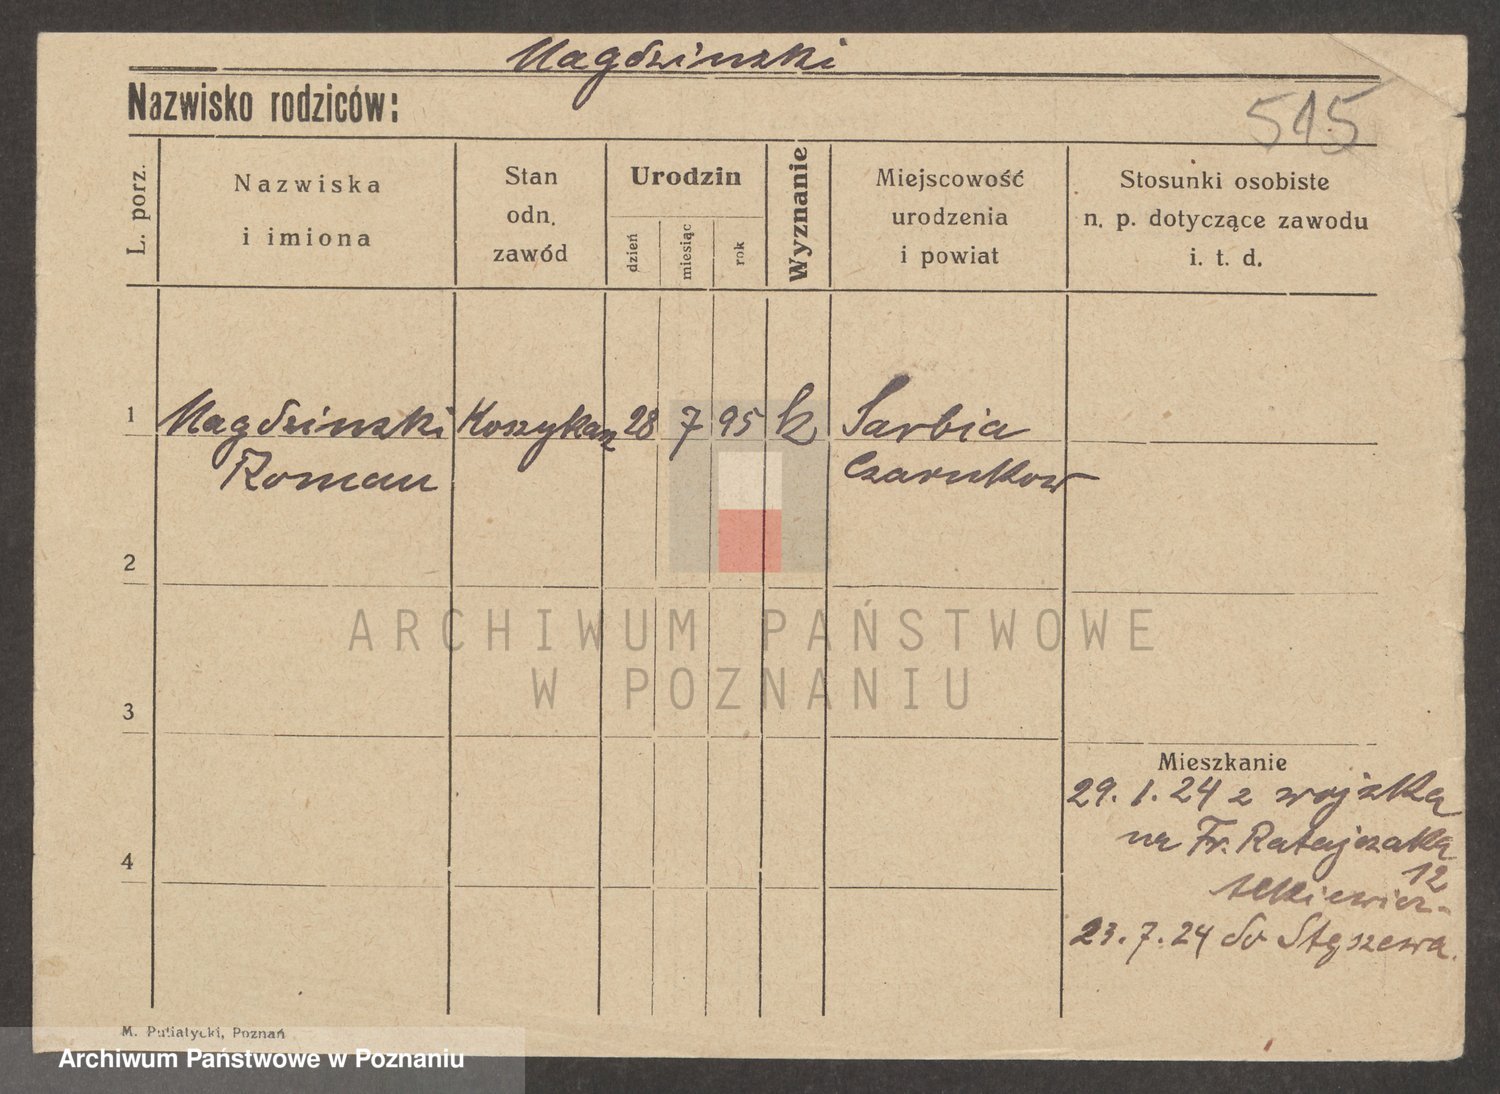 Magdzinski
Nazwisko rodziców:
515
L. porz.
Nazwiska
i imiona
Stan
odn.
zawód
Urodzin
dzień
miesiąc
rok
Wyznanie
Miejscowość
urodzenia
i powiat
Stosunki osobiste
n. p. dotyczące zawodu
i. t. d.
1 Magdzinski Koszykarz 28 7 95 k Sarbia
Roman Czarnkow
2
3
4
Mieszkanie
29. 1. 24 z wojska
na Fr. Ratajczaka
12
23. 7. 24 do Stęszewa.
ARCHIWUM PAŃSTWOWE
W POZNANIU
M. Putiatycki, Poznań
Archiwum Państwowe w Poznaniu